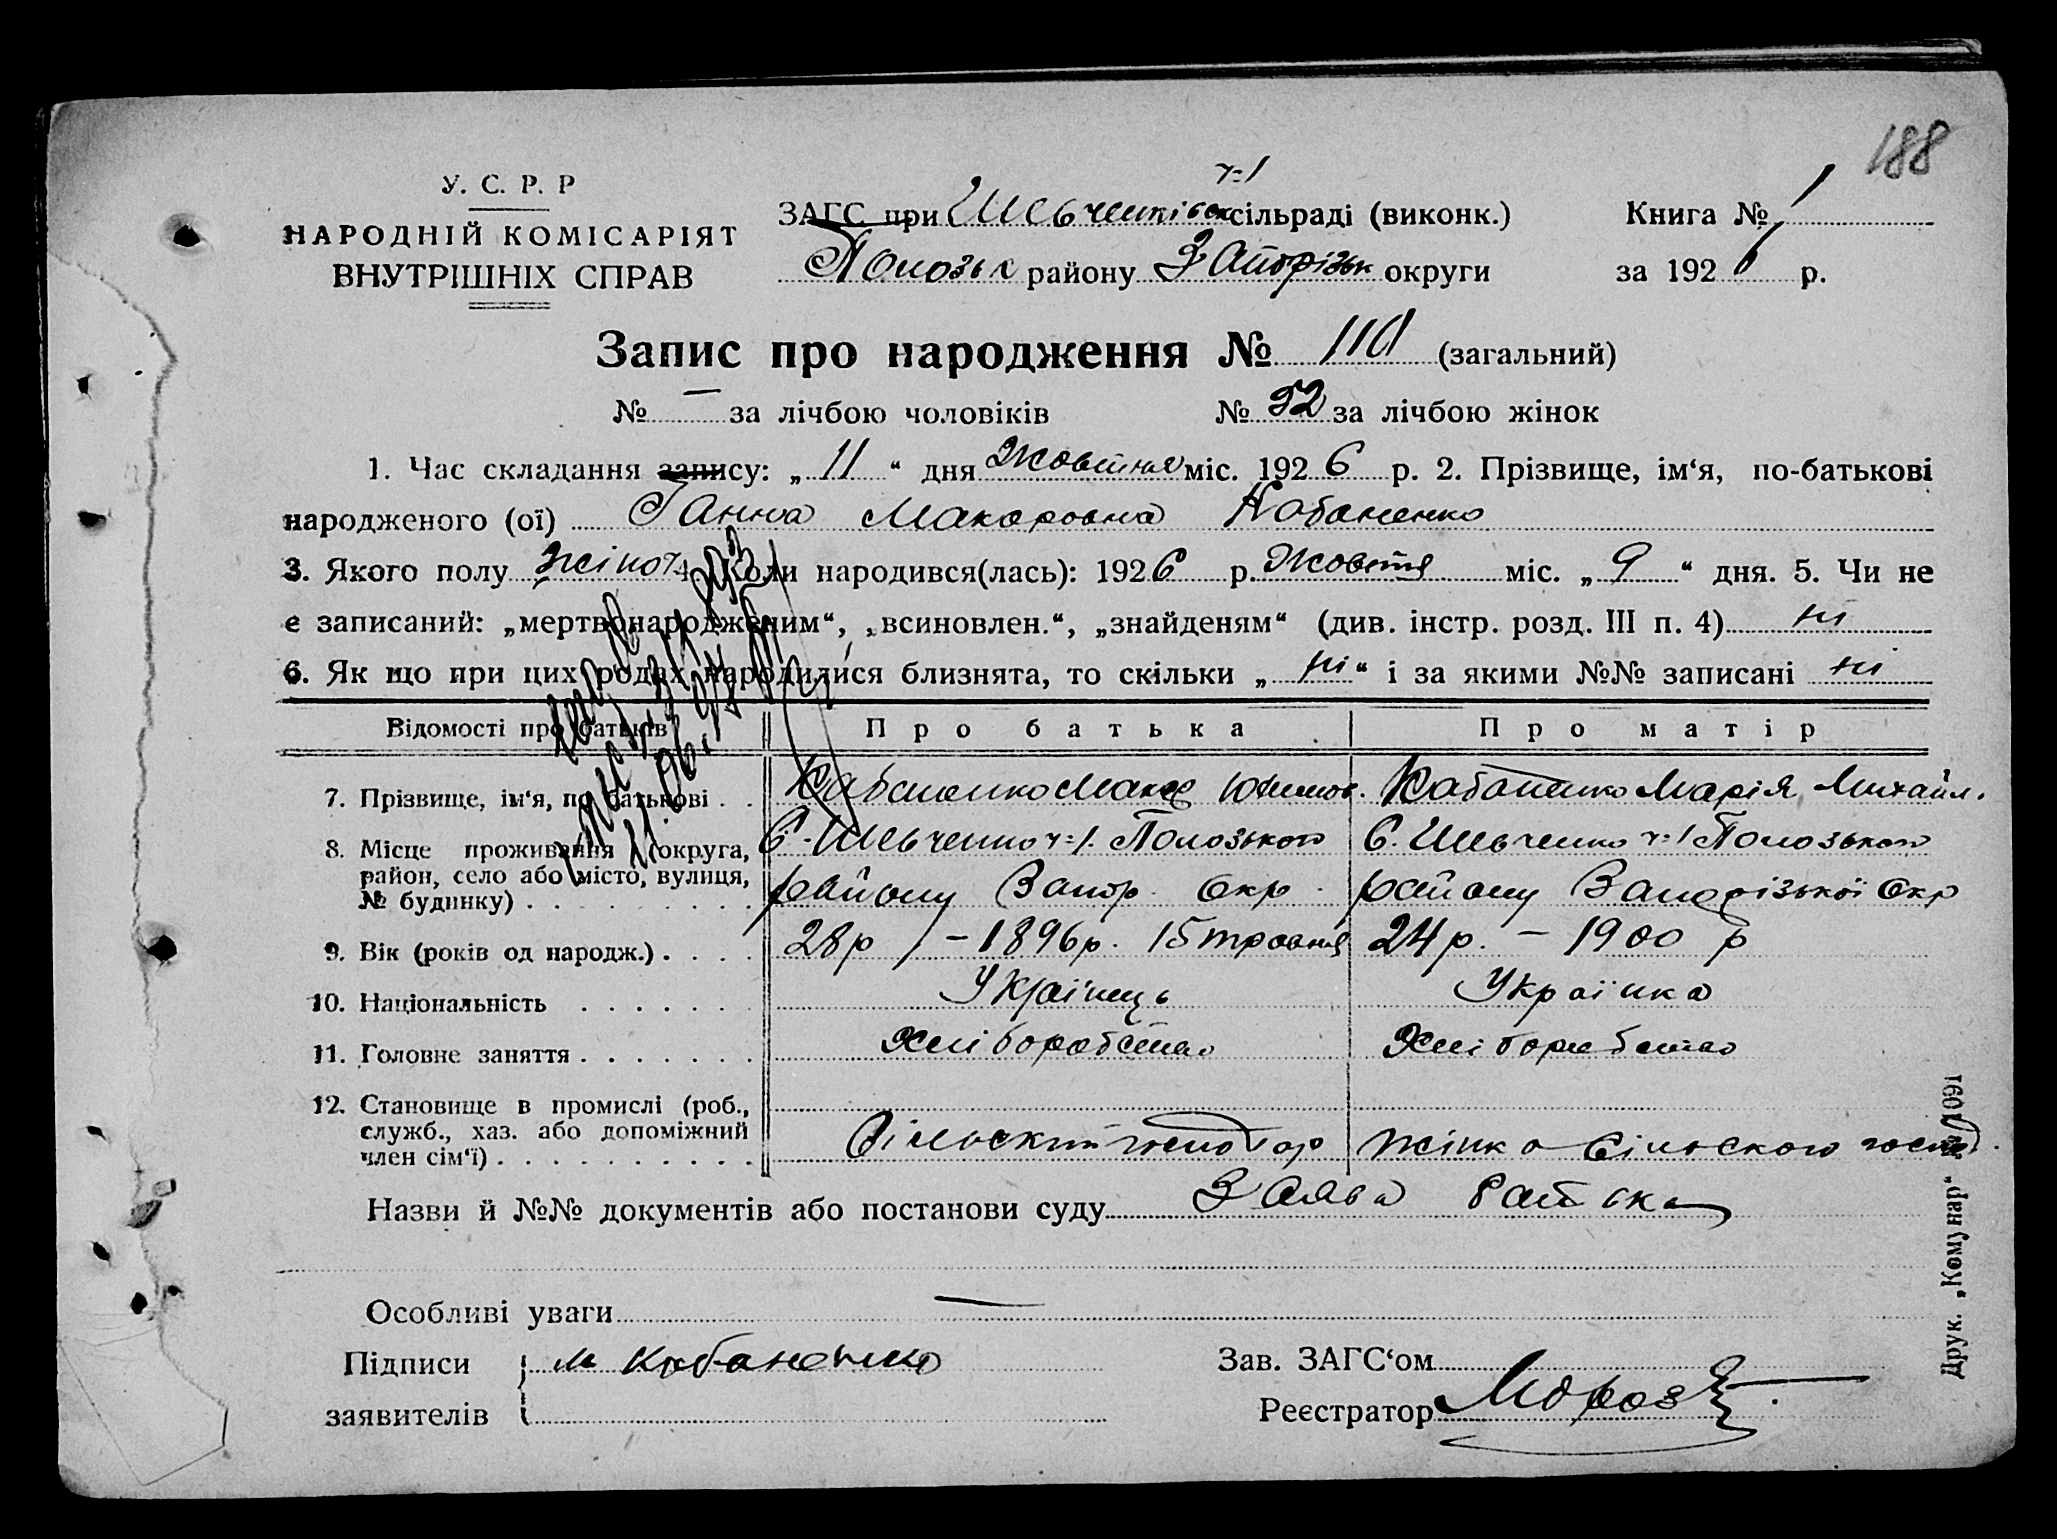 188
У. С. Р. Р
НАРОДНІЙ КОМІСАРІЯТ
ВНУТРІШНІХ СПРАВ
ч=1
ЗАГС при Шевченківськ сільраді (виконк.)
Полозьк району Запорізьк округи
Книга № 1
за 1926 р.
Запис про народження № 110 (загальний)
№ — за лічбою чоловіків № 52 за лічбою жінок
1. Час складання запису: „ 11 “ дня Жовтня міс. 1926 р. 2. Прізвище, ім‘я, по-батькові
народженого (ої) Ганна Макаровна Кабаненко
3. Якого полу жіноч 4. Коли народився(лась): 1926 р. Жовтня міс. „ 9 “ дня. 5. Чи не
є записаний: „мертвонародженим“, „всиновлен.“, „знайденям“ (див. інстр. розд. III п. 4) ні
6. Як що при цих родах народилися близнята, то скільки „ ні “ і за якими №№ записані ні
Відомості про батьків Про батька Про матір
7. Прізвище, ім‘я, по батькові . . Кабаненко Макар Юхимов. Кабаненко Марія Михайл.
8. Місце проживання (округа, район, село або місто, вулиця, № будинку) . С. Шевченко ч=1. Полозького С. Шевченко ч=1 Полозького
району Запор. Окр. району Запорізької Окр
9. Вік (років од народж.) . . . . 28 р – 1896 р. 15 травня 24 р. – 1900 р
10. Національність Українець Українка
11. Головне заняття . . . . . . . Хліборобство Хліборобство
12. Становище в промислі (роб., служб., хаз. або допоміжний член сім‘ї) . . Сільский господар жінка Сільского господ.
Назви й №№ документів або постанови суду Заява батька
Особливі уваги —
Підписи м Кабаненко Зав. ЗАГС‘ом
заявителів Реєстратор Мороз
Друк. „Комунар“ 1091